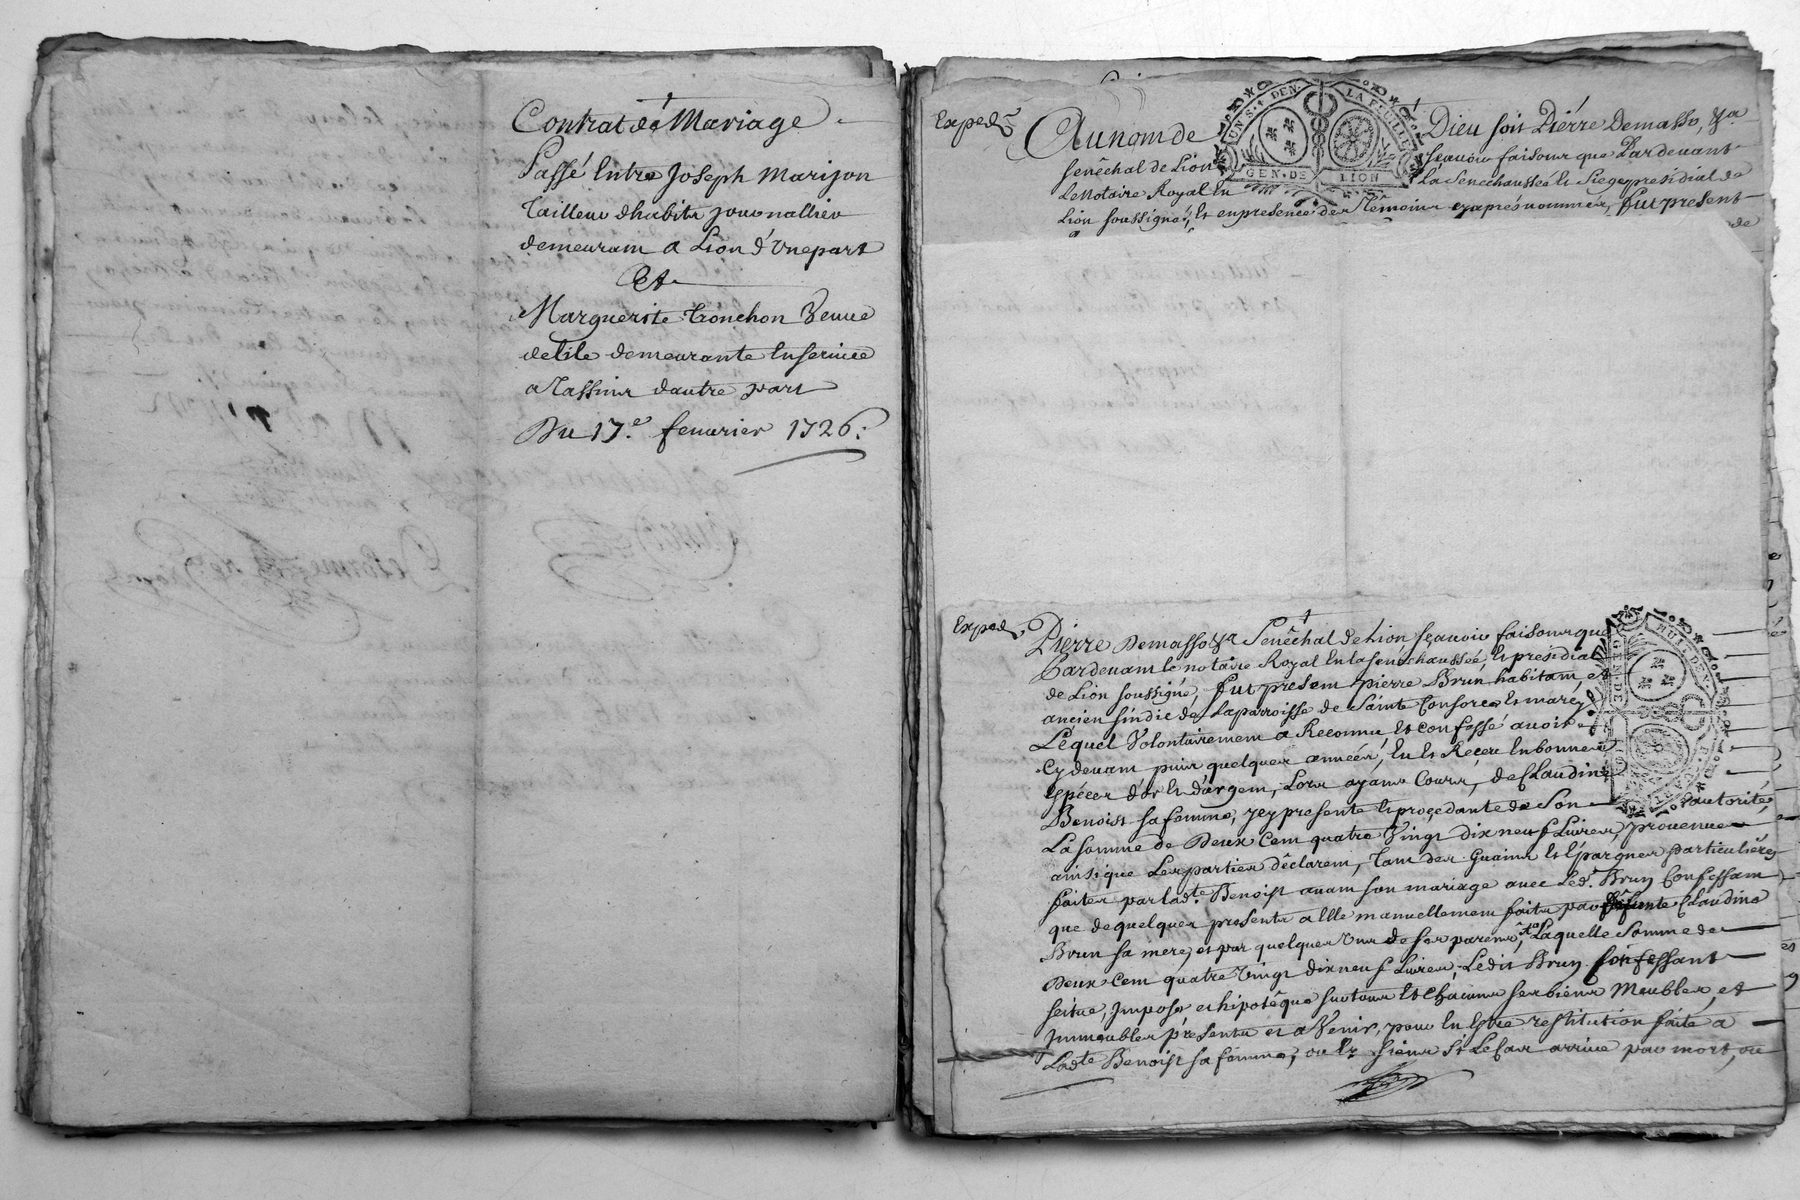 Contrat de Mariage
Passé Entre Joseph Marijon
Tailleur dhabits journallier
demeurant a Lion d'Vne part
Et
Marguerite Tronchon Veuue
demeurante En seruice
a Tassins dautre part
Du 17.e feuurier 1726.
Exped.
Au nom de Dieu soit Pierre Demasso, Sr.
UN S. 4 DEN. LA FEUILLE
GEN. DE LION
Senêchal de Lion sçauoir faisons que Pardeuant
Le Notaire Royal En La Senechaussée Et Siege presidial de
Lion soussigné, Et en presence des Têmoins cyaprés nommés, fut present
de
Exped.
Pierre Demasso Sr. Senêchal de Lion sçauoir faisons que
Pardeuant le notaire Royal En la senéchaussée, Et presidial
de Lion soussigné, fut present pierre Brun habitant, et
ancien sindic de La parroisse de Sainte Consorce Et marcy
Lequel Volontairement a Reconnu Et confessé auoir
Cy deuant puis quelques années, Eu Et Receu En bonnes
Espéces d'or Et d'argent, Lors ayans Cours, de Claudine
HUIT DEN.
GEN. DE
Benoist sa femme, jcy presente Et proçedante de Son autorité,
La somme de Deux Cent quatre Vingt dix neuf Liures, prouenue
ainsi que Les parties dêclarent, Tant des Guains Et Epargnes particulières
faites par lad.te Benoist auant son mariage auec Led.t Brun Confessant
que de quelques presents a Elle manuellement faits par deffunte Claudine
Brun sa mere, et par quelques Vns de ses parens, Laquelle Somme de
Deux Cent quatre Vingt dix neuf Liures, Ledit Brun Confessant
seitue, Impose, et hipotêque sur tous Et Chacuns ses biens Meubles, et
jmmeubles presents et a Venir, pour En Estre restitution faite a
Lad.te Benoist sa femme, ou Es siens si Le Cas arriue par mort, ou